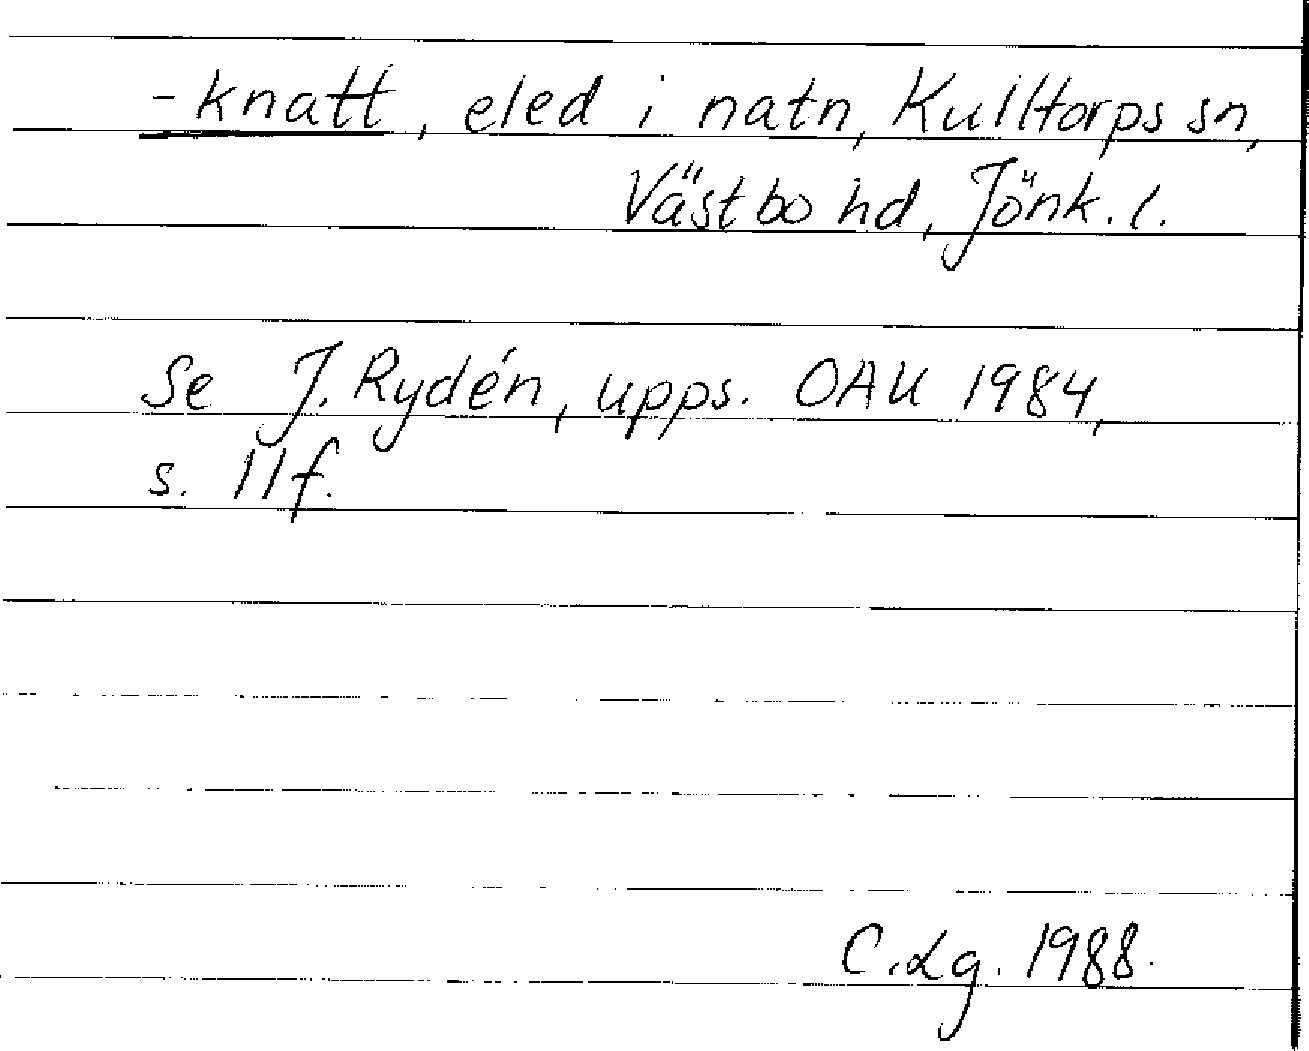 -knatt, eled i natn, Kulltorps sn,
Västbo hd, Jönk. l.
Se J. Rydén, upps. OAU 1984,
s. 11f.
C. Lg. 1988.